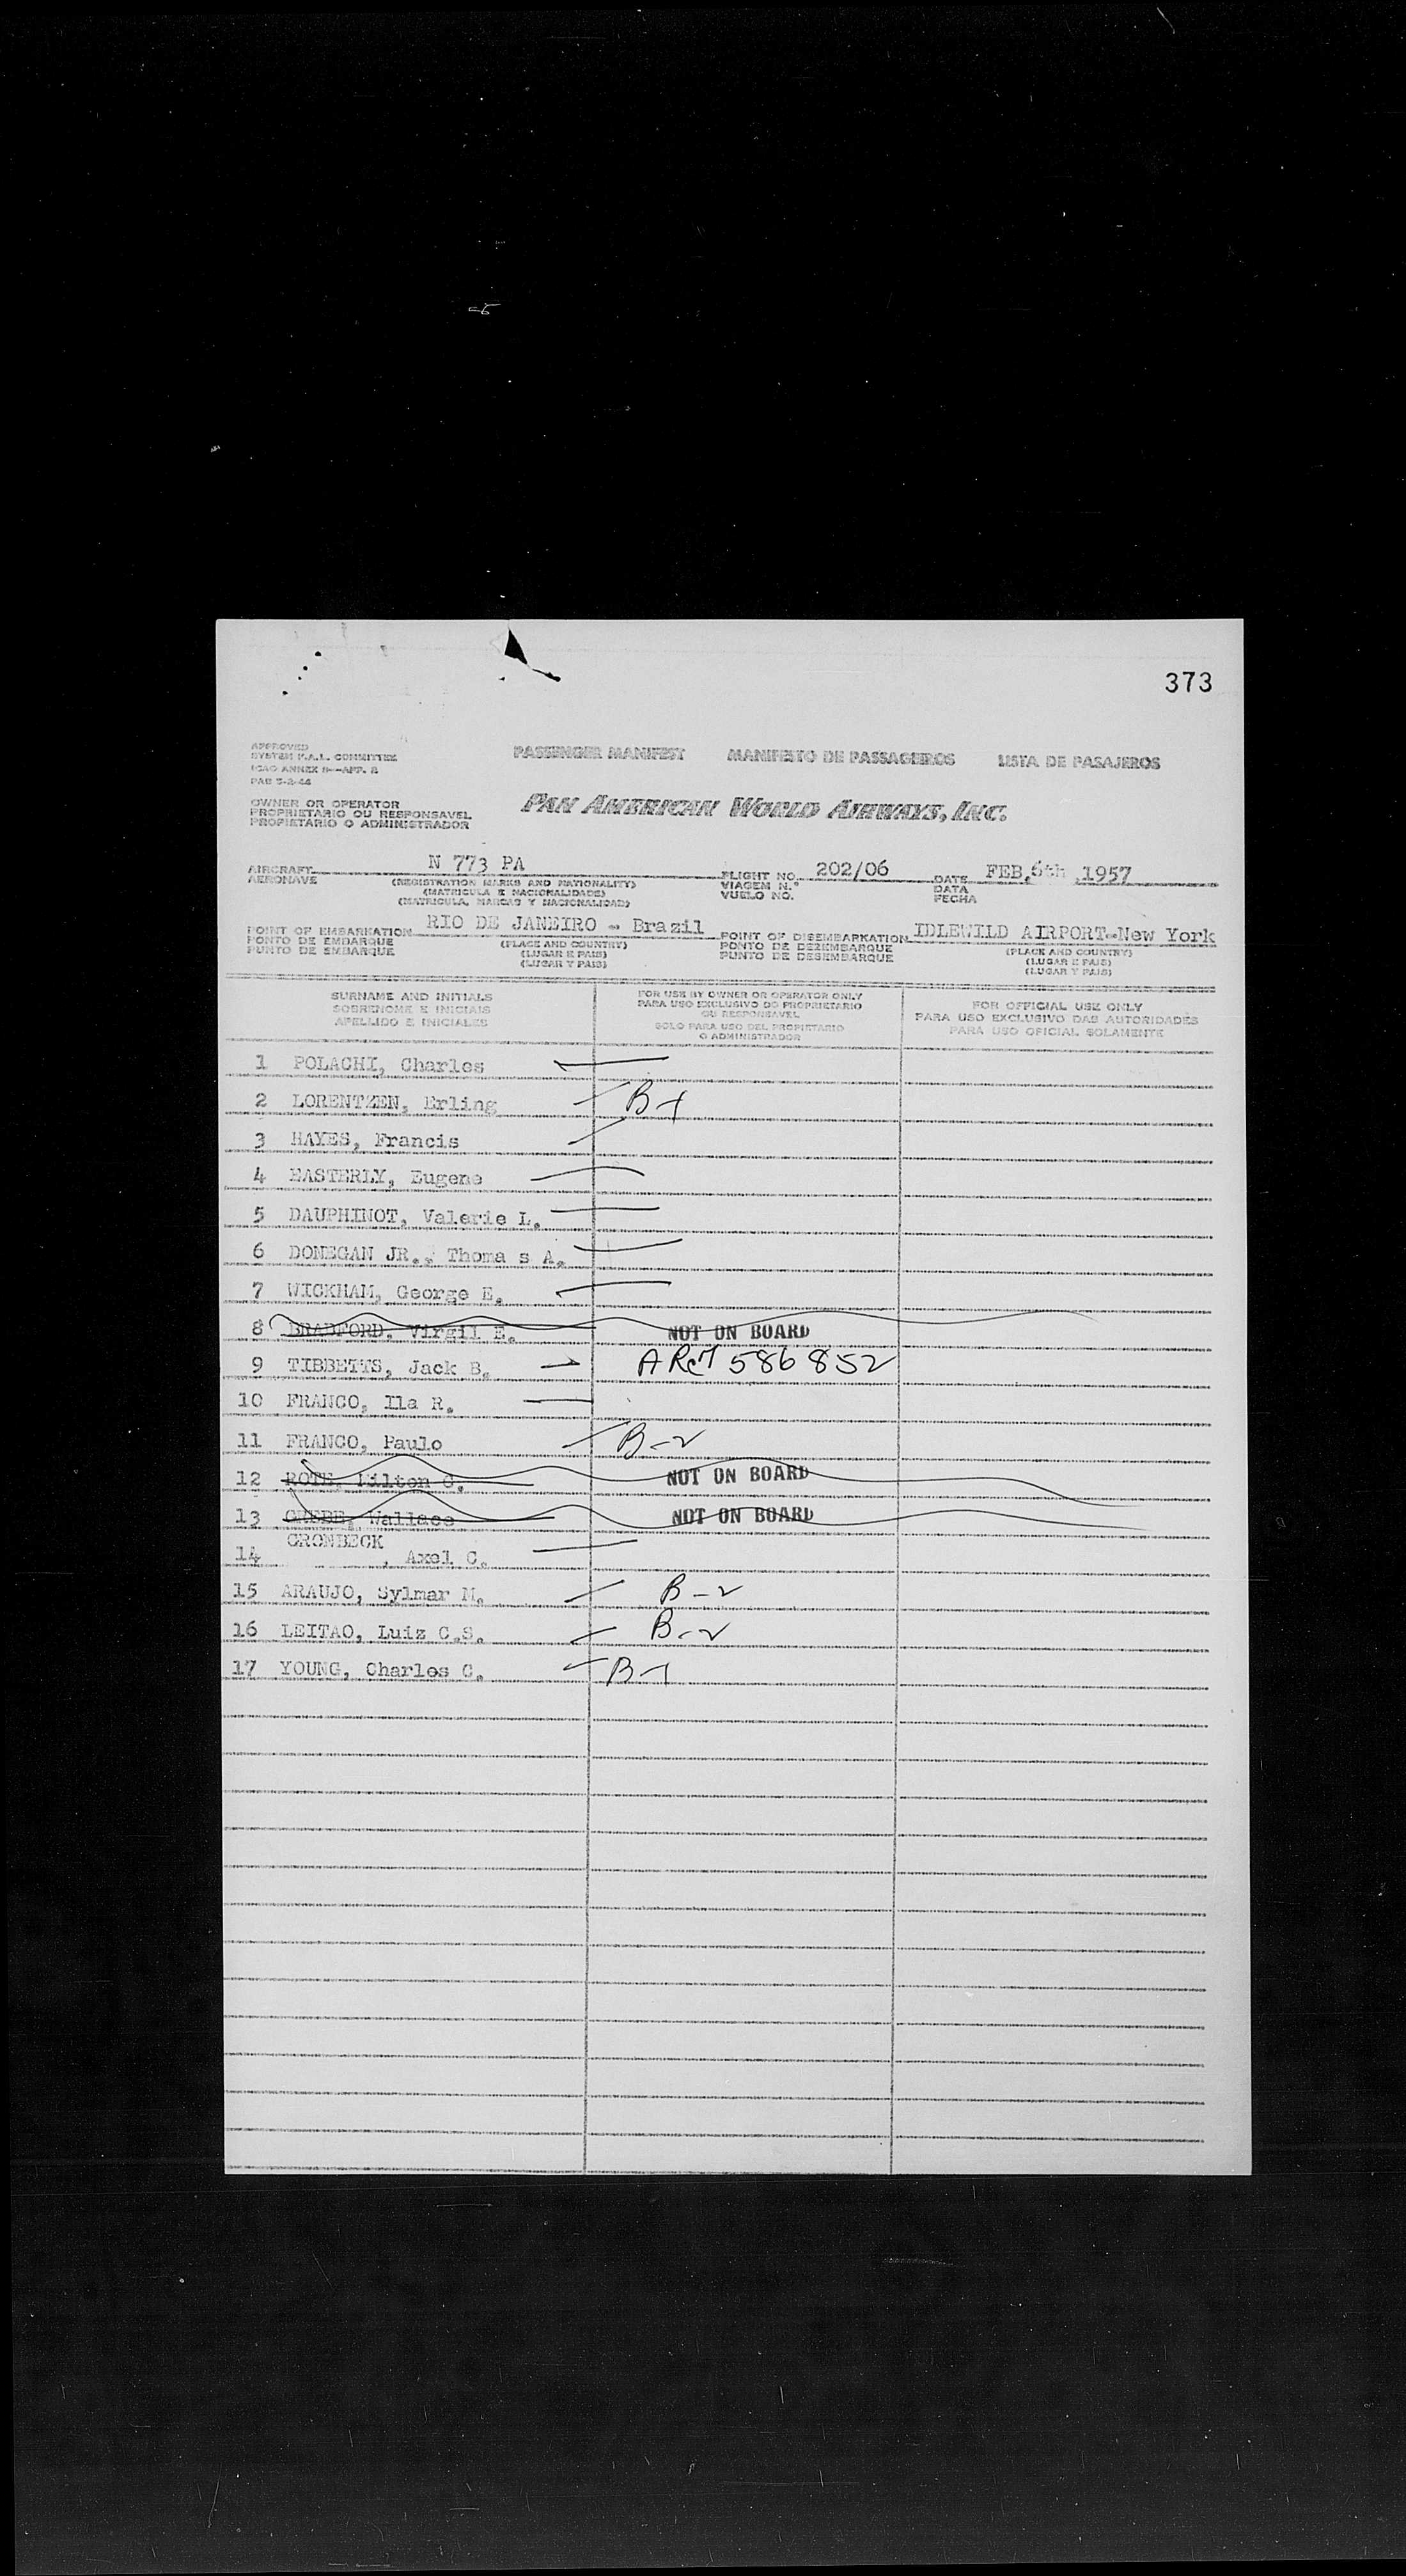 373
APPROVED
SYSTEM F.A.L. COMMITTEE
ICAO ANNEX 9—APP. 2
PASSENGER MANIFEST MANIFESTO DE PASSAGEIROS LISTA DE PASAJEROS
OWNER OR OPERATOR
PROPRIETARIO OU RESPONSAVEL
PROPIETARIO O ADMINISTRADOR
PAN AMERICAN WORLD AIRWAYS, INC.
AIRCRAFT N 773 PA FLIGHT NO. 202/06 DATE FEB, ,1957
AERONAVE (REGISTRATION MARKS AND NATIONALITY) VIAGEM N.° DATA
(MATRICULA E NACIONALIDADE) VUELO NO. FECHA
(MATRICULA, MARCAS Y NACIONALIDAD)
POINT OF EMBARKATION RIO DE JANEIRO - Brazil POINT OF DISEMBARKATION IDLEWILD AIRPORT-New York
PONTO DE EMBARQUE (PLACE AND COUNTRY) PONTO DE DEZEMBARQUE (PLACE AND COUNTRY)
PUNTO DE EMBARQUE (LUGAR E PAIS) PUNTO DE DESEMBARQUE (LUGAR E PAIS)
(LUGAR Y PAIS) (LUGAR Y PAIS)
SURNAME AND INITIALS
SOBRENOME E INICIAIS
APELLIDO E INICIALES
FOR USE BY OWNER OR OPERATOR ONLY
PARA USO EXCLUSIVO DO PROPRIETARIO
OU RESPONSAVEL
SOLO PARA USO DEL PROPIETARIO
O ADMINISTRADOR
FOR OFFICIAL USE ONLY
PARA USO EXCLUSIVO DAS AUTORIDADES
PARA USO OFICIAL SOLAMENTE
1 POLACHI, Charles
2 LORENTZEN, Erling B-1
3 HAYES, Francis
4 EASTERLY, Eugene
5 DAUPHINOT, Valerie L.
6 DONEGAN JR., Thoma s A.
7 WICKHAM, George E.
8 BRADFORD, Virgil E. NOT ON BOARD
9 TIBBETTS, Jack B. 586852
10 FRANCO, Ila R.
11 FRANCO, Paulo B-2
12 ROTH, Milton C. NOT ON BOARD
13 Wallace NOT ON BOARD
GRONBECK
14 , Axel C.
15 ARAUJO, Sylmar M. B-2
16 LEITAO, Luiz C.S. B-2
17 YOUNG, Charles C. B-1